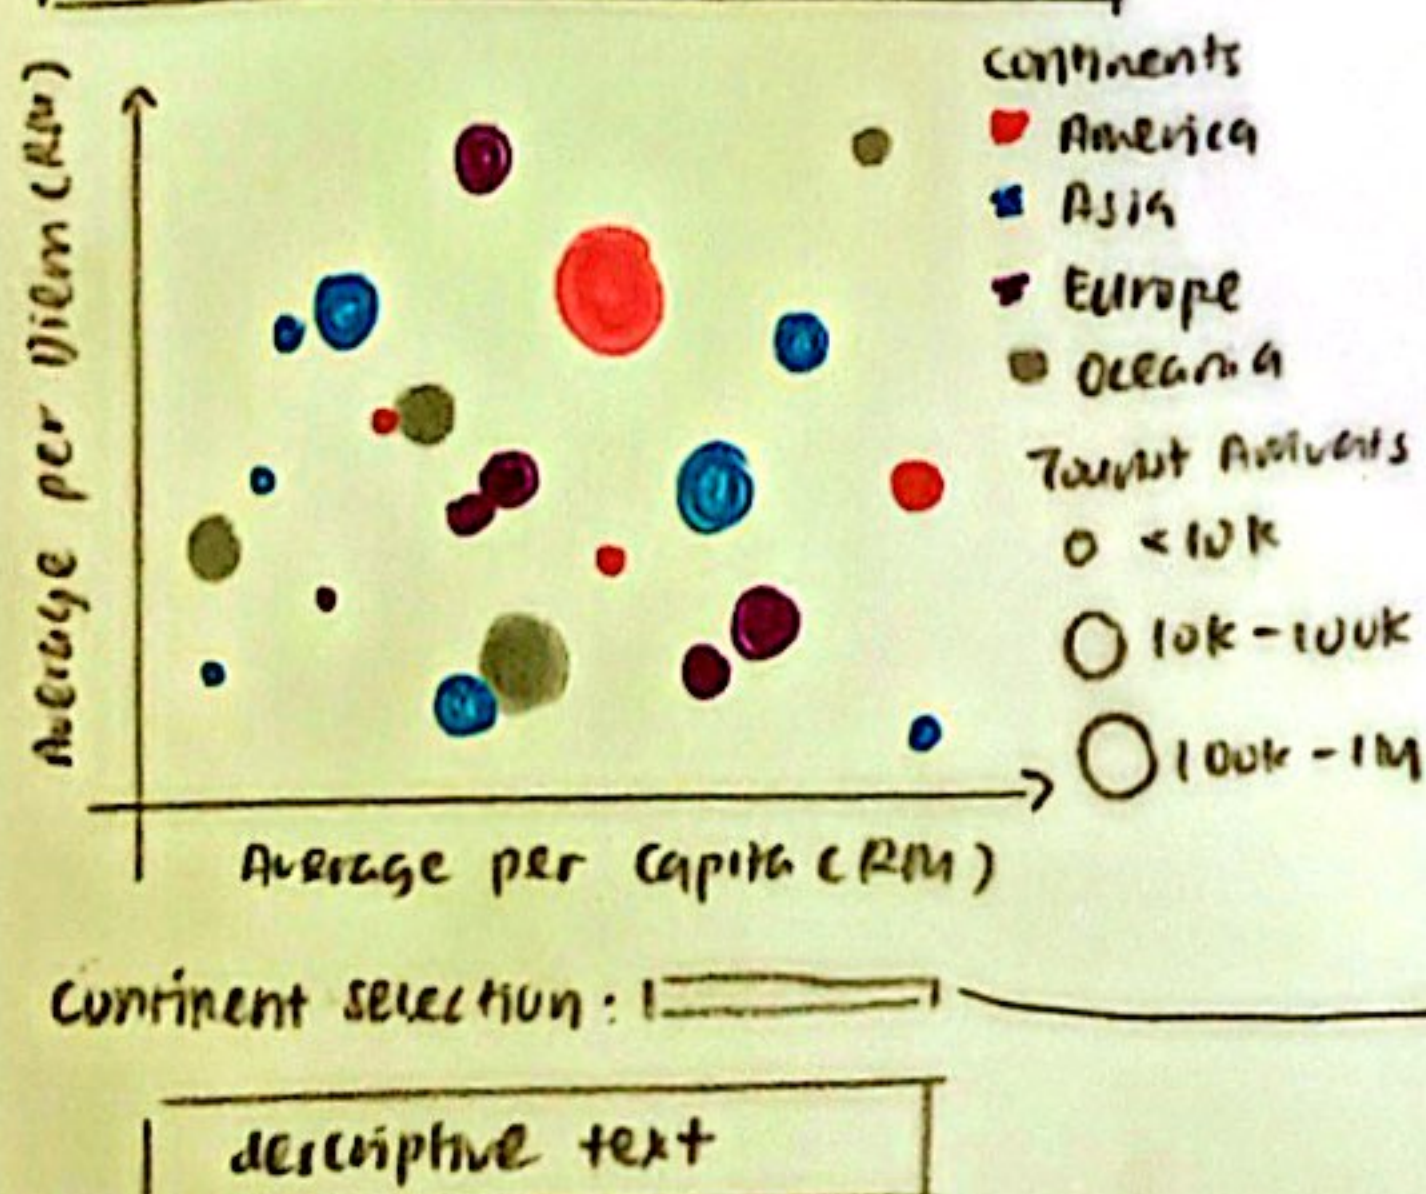 Average per Diem (RM)
Continents
America
Asia
Europe
Oceania
Tourist Arrivals
<10k
10k - 100k
100k - 1M
Average per Capita (RM)
Continent selection:
descriptive text